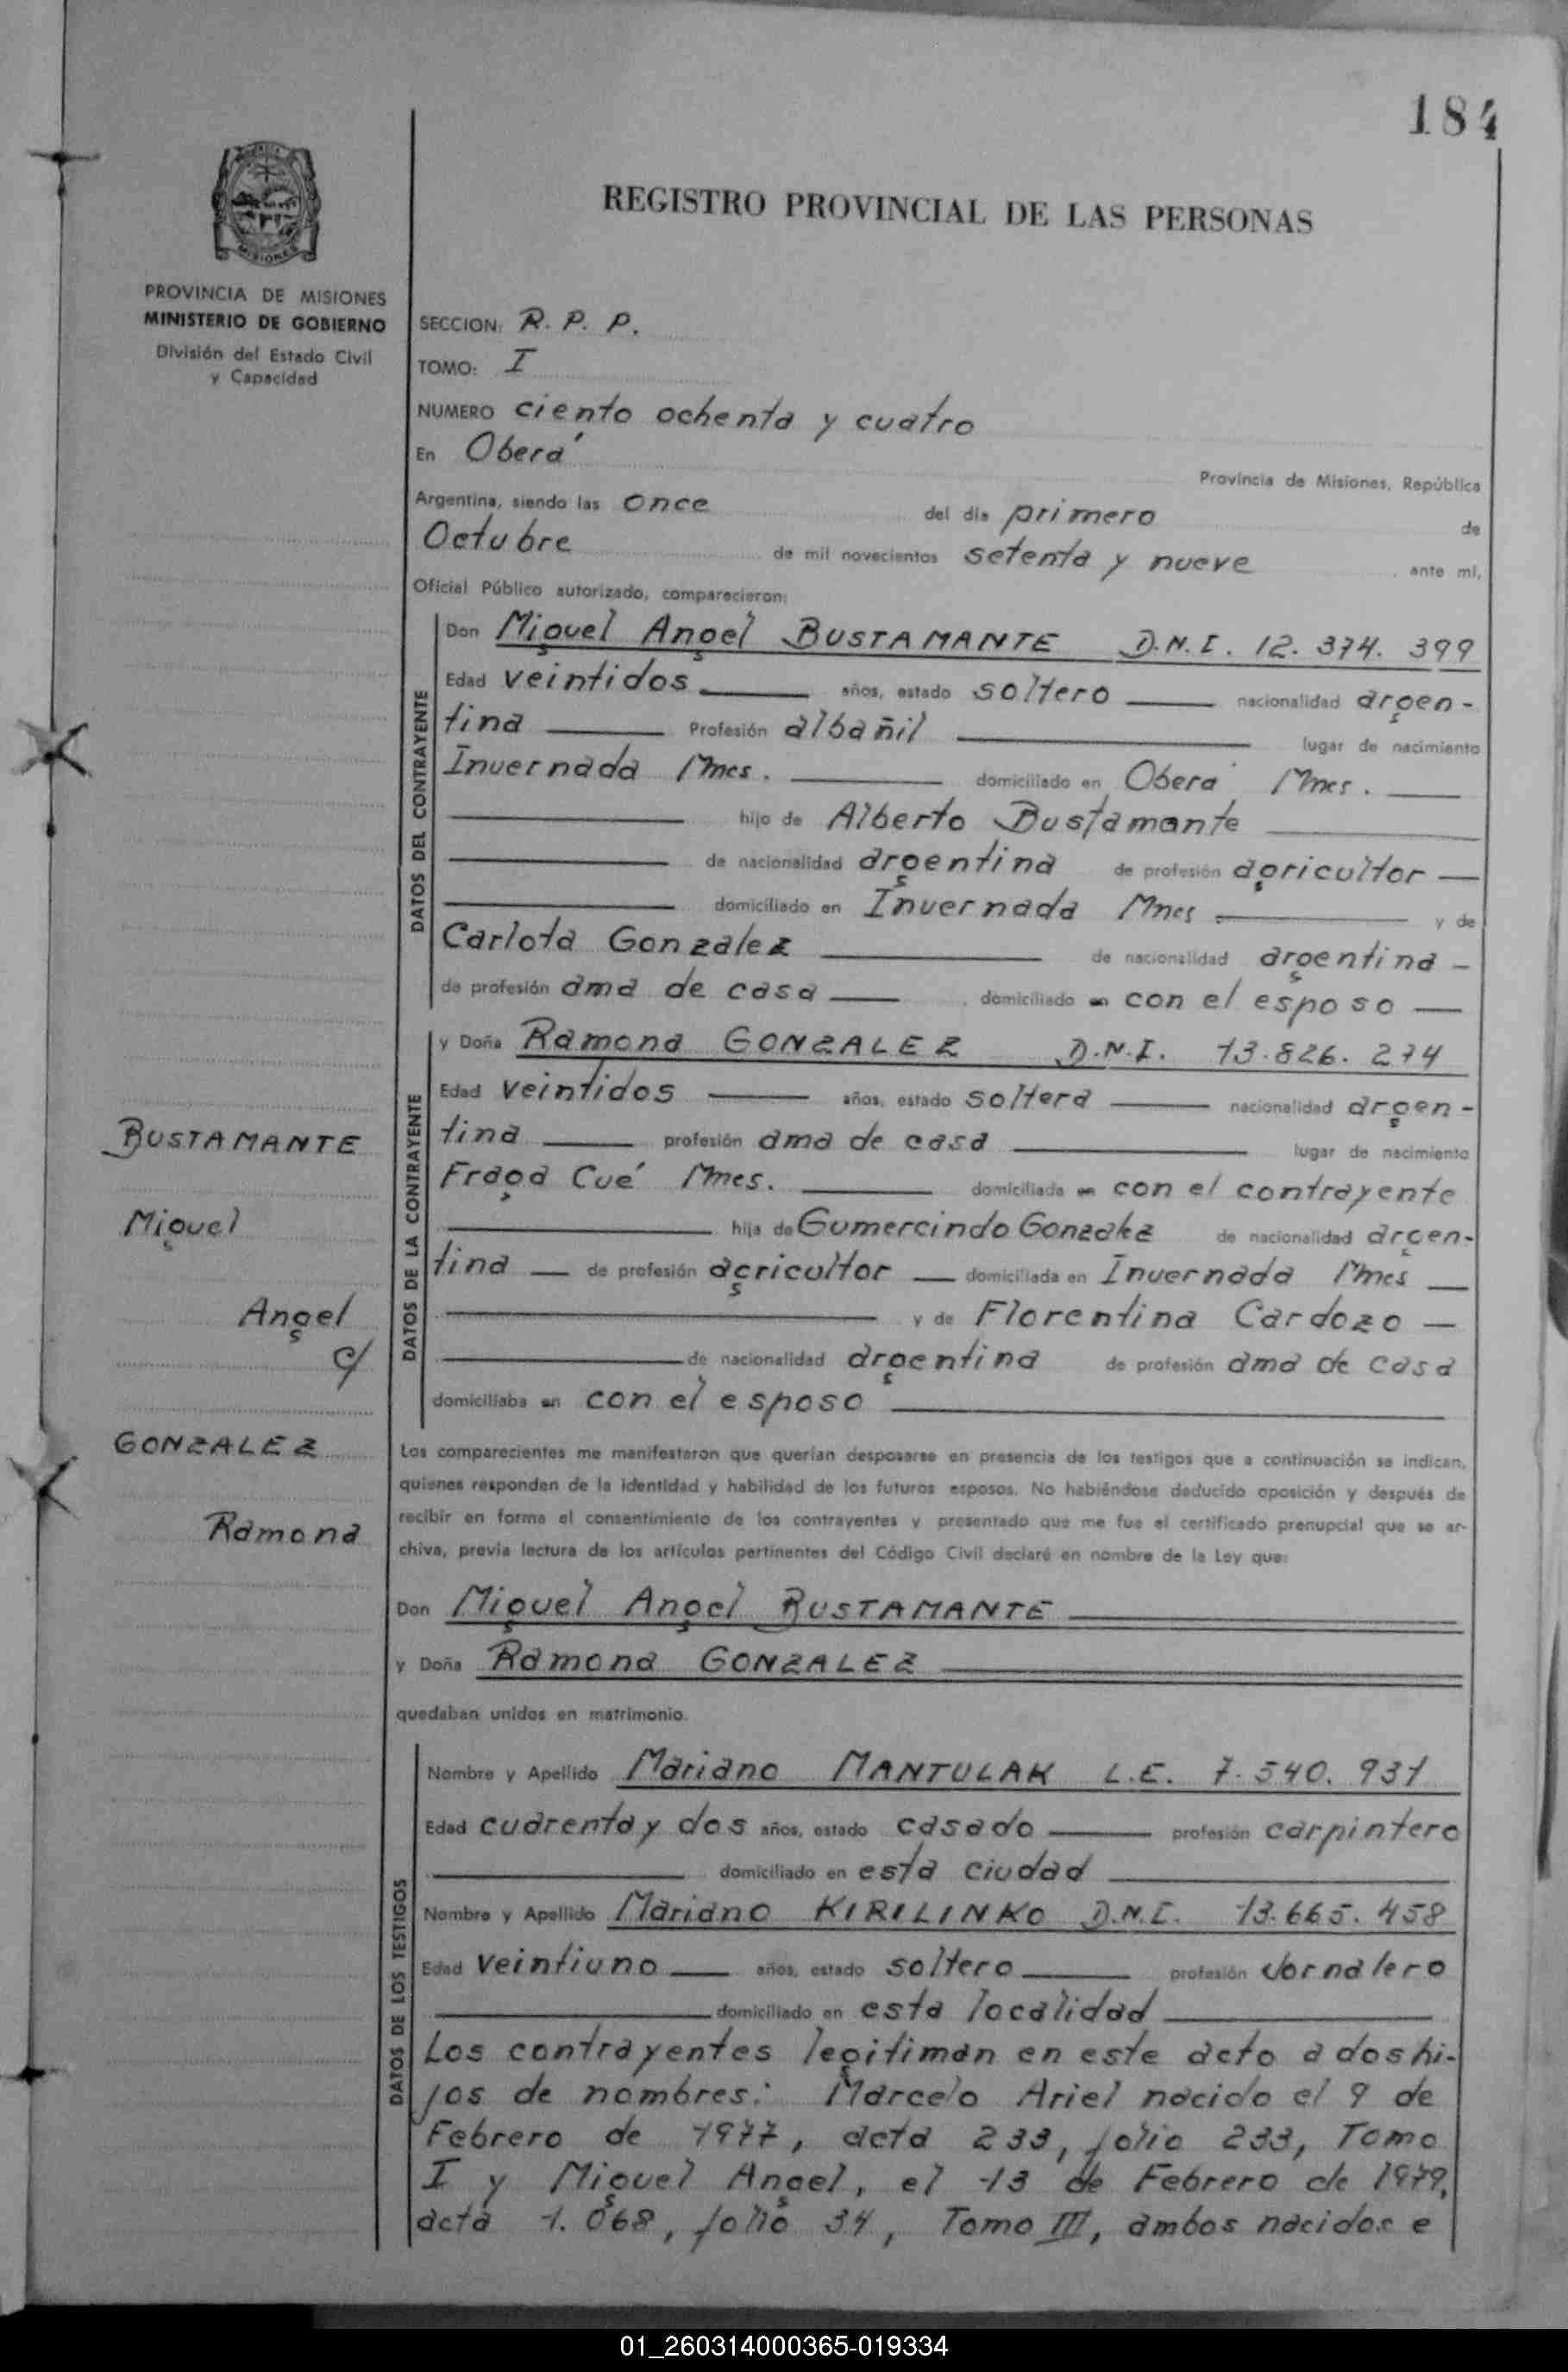 184
REGISTRO PROVINCIAL DE LAS PERSONAS
MISIONES
PROVINCIA DE MISIONES
MINISTERIO DE GOBIERNO
División del Estado Civil
y Capacidad
SECCION: R. P. P.
TOMO: I
NUMERO ciento ochenta y cuatro
En Oberá
Provincia de Misiones, República
Argentina, siendo las once del día primero de
Octubre de mil novecientos setenta y nueve, ante mí,
Oficial Público autorizado, comparecieron:
DATOS DEL CONTRAYENTE
Don Miguel Angel BUSTAMANTE D.N.I. 12.374.399
Edad veintidos años, estado soltero nacionalidad argen-
tina Profesión albañil lugar de nacimiento
Invernada Mnes. domiciliado en Oberá Mnes.
hijo de Alberto Bustamante
de nacionalidad argentina de profesión agricultor
domiciliado en Invernada Mnes. y de
Carlota Gonzalez de nacionalidad argentina
de profesión ama de casa domiciliado en con el esposo
DATOS DE LA CONTRAYENTE
y Doña Ramona GONZALEZ D.N.I. 13.826.274
Edad veintidos años, estado soltera nacionalidad argen-
tina profesión ama de casa lugar de nacimiento
Fraga Cué Mnes. domiciliada en con el contrayente
hija de Gumercindo Gonzalez de nacionalidad argen-
tina de profesión agricultor domiciliada en Invernada Mnes
y de Florentina Cardozo
de nacionalidad argentina de profesión ama de casa
domiciliaba en con el esposo
BUSTAMANTE
Miguel
Angel
c/
GONZALEZ
Ramona
Los comparecientes me manifestaron que querían desposarse en presencia de los testigos que a continuación se indican,
quienes responden de la identidad y habilidad de los futuros esposos. No habiéndose deducido oposición y después de
recibir en forma el consentimiento de los contrayentes y presentado que me fue el certificado prenupcial que se ar-
chiva, previa lectura de los artículos pertinentes del Código Civil declaré en nombre de la Ley que:
Don Miguel Angel BUSTAMANTE
y Doña Ramona GONZALEZ
quedaban unidos en matrimonio.
DATOS DE LOS TESTIGOS
Nombre y Apellido Mariano MANTULAK L.E. 7.540.931
Edad cuarenta y dos años, estado casado profesión carpintero
domiciliado en esta ciudad
Nombre y Apellido Mariano KIRILINKO D.N.I. 13.665.458
Edad veintiuno años, estado soltero profesión Jornalero
domiciliado en esta localidad
Los contrayentes legitiman en este acto a dos hi-
jos de nombres: Marcelo Ariel nacido el 9 de
Febrero de 1977, acta 233, folio 233, Tomo
I y Miguel Angel, el 13 de Febrero de 1979,
acta 1.068, folio 34, Tomo III, ambos nacidos e
01_260314000365-019334